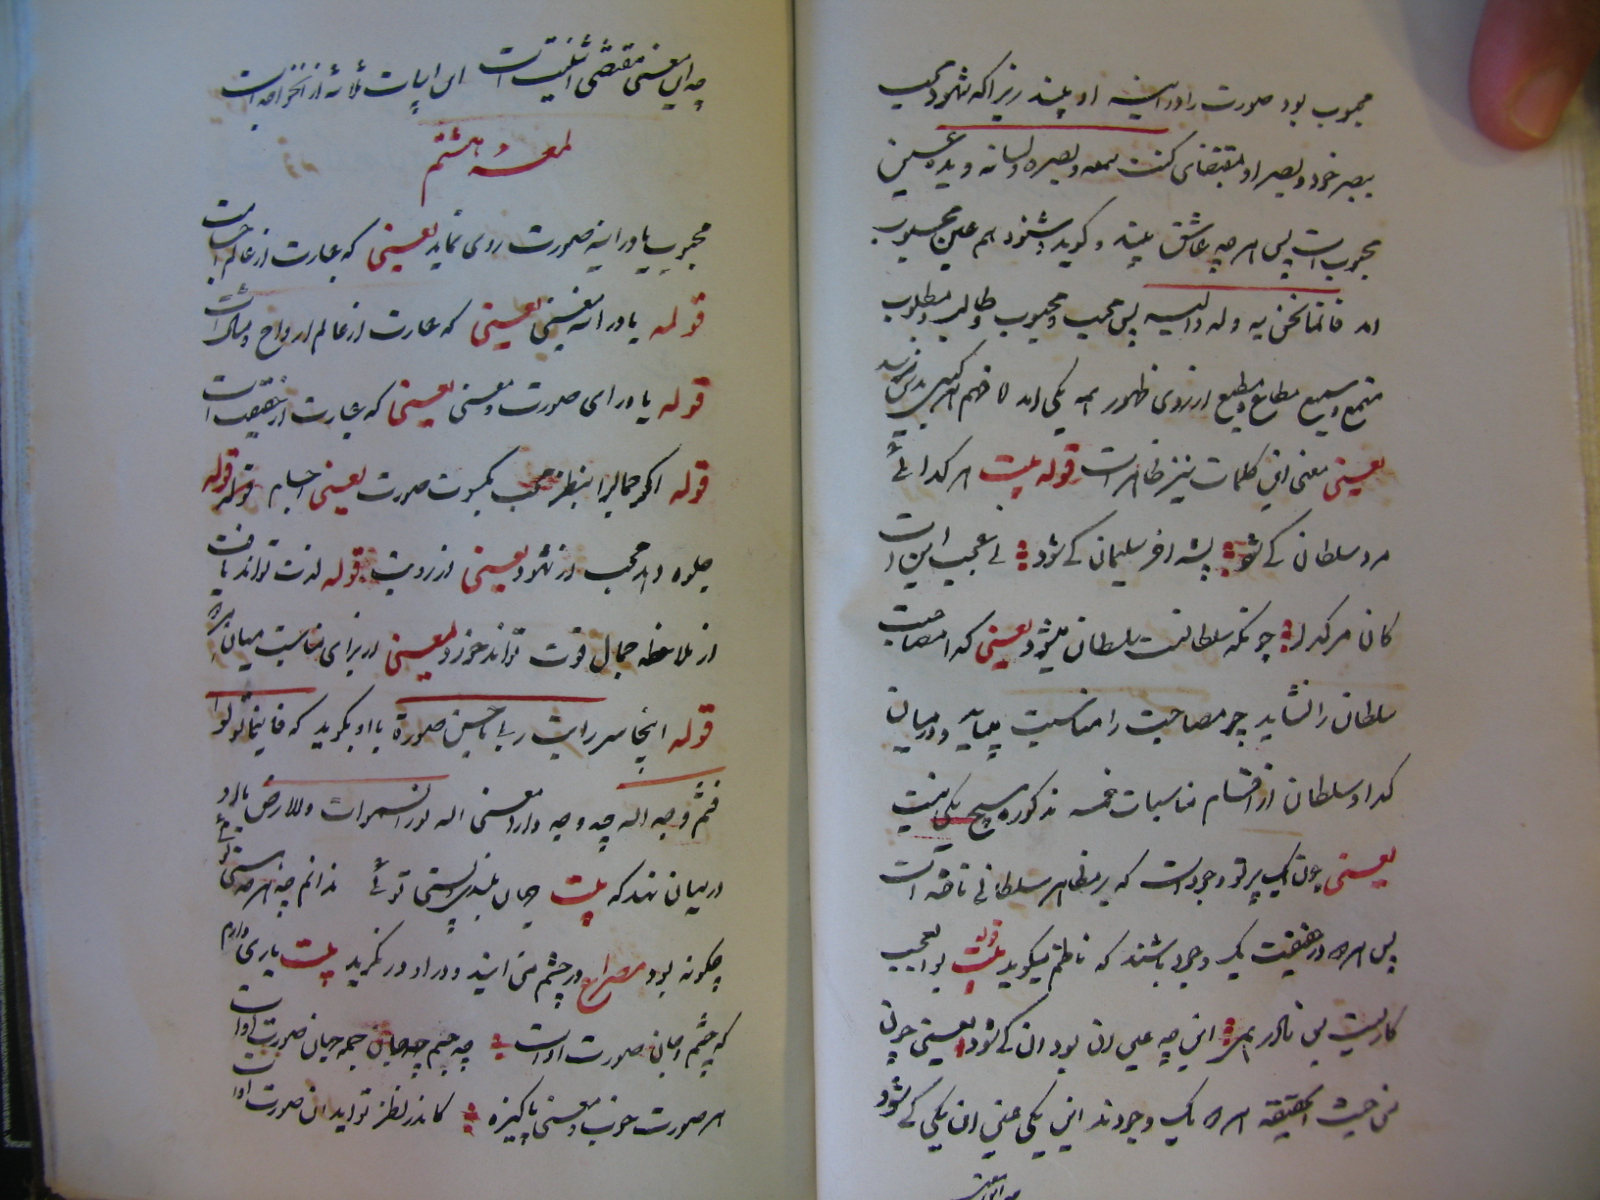 محبوب بود صورت را در آینه او بیند زیرا که شهود محب
ببصر خود و بصر او بمقتضای کنت سمعه و بصره و لسانه و یده عین
محبوبست پس هر چه عاشق بیند و گوید و شنود هم عین محبوب
اند فانما نحن به و له و الیه پس محب و محبوب و طالب و مطلوب
مستمع و سمیع مطاع و مطیع از روی ظهور همه یکی اند لا فهم هر کسی بدین نرسد
یعنی معنی این کلمات نیز ظاهرست قوله بیت هر گدائی
مرد سلطان کی شود پشه آخر سلیمان کی شود نی عجب این است
کان مرد گدا چونکه سلطانست سلطان میشود یعنی گدا مصاحبت
سلطان را نشاید چو مصاحبت را مناسبت بباید و در میان
گدا و سلطان از اقسام مناسبات خمسه مذکوره هیچ یکی نیست
یعنی چون یک پرتو وجودست که بر مظاهر سلطانی تافته است
پس هر دو در حقیقت یک وجود باشند که ناظم میگوید قوله بیت بوالعجب
کاریست بس نادر رهی این چه عین آن بود آن کی شود یعنی چون
من حیث الحقیقه هر دو یک وجودند این یکی عین آن یکی کی شود
چه این معنی مقتضی اثنینیت است این ابیات ثلاثه از خواجه است
لمعه هشتم
محبوب یا در آینه صورت روی نماید یعنی که عبارت از عالم اجسامست
قوله یا در آینه معنی یعنی که عبارت از عالم ارواح و مثالست
قوله یا ورای صورت و معنی یعنی که عبارت از حقیقت است
قوله اگر جمال را بنظر محب بکسوت صورت یعنی اجسام قوله
جلوه دهد محب از شهود یعنی از رویت قوله لذت تواند یافت
از ملاحظه جمال قوت تواند خورد یعنی از برای مناسبت میان هر دو
قوله اینجا سر رایت ربی باحسن صورة با او بگوید که فاینما تولوا
فثم وجه الله چه وجه دارد معنی الله نور السموات والارض با او
در میان نهد که بیت جهان بلندی و پستی توئی ندانم چه هر چه هستی توئی
چگونه بود مصراع در چشم من آیند و در او در نگرید بیت یاری دارم
که جسم و جان صورت اوست چه جسم چه جان جمله جهان صورت اوست
هر صورت خوب و معنی پاکیزه کاندر نظر تو آید آن صورت اوست